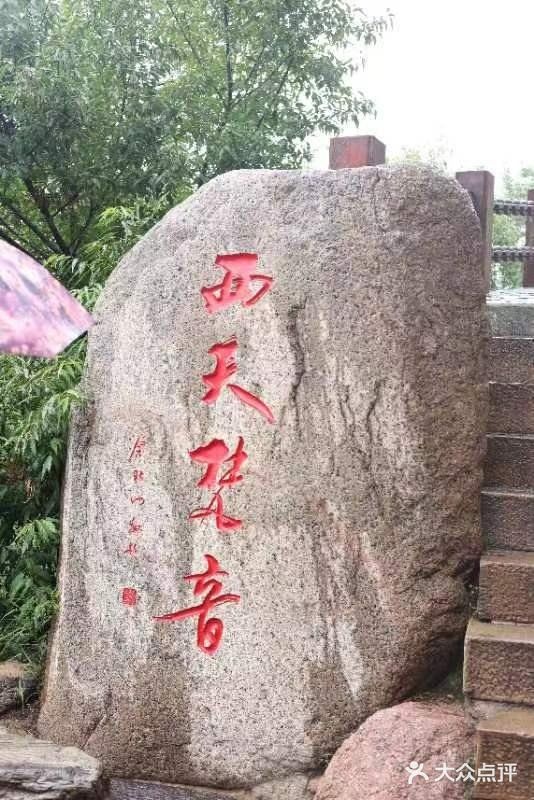 西天梵音
大众点评